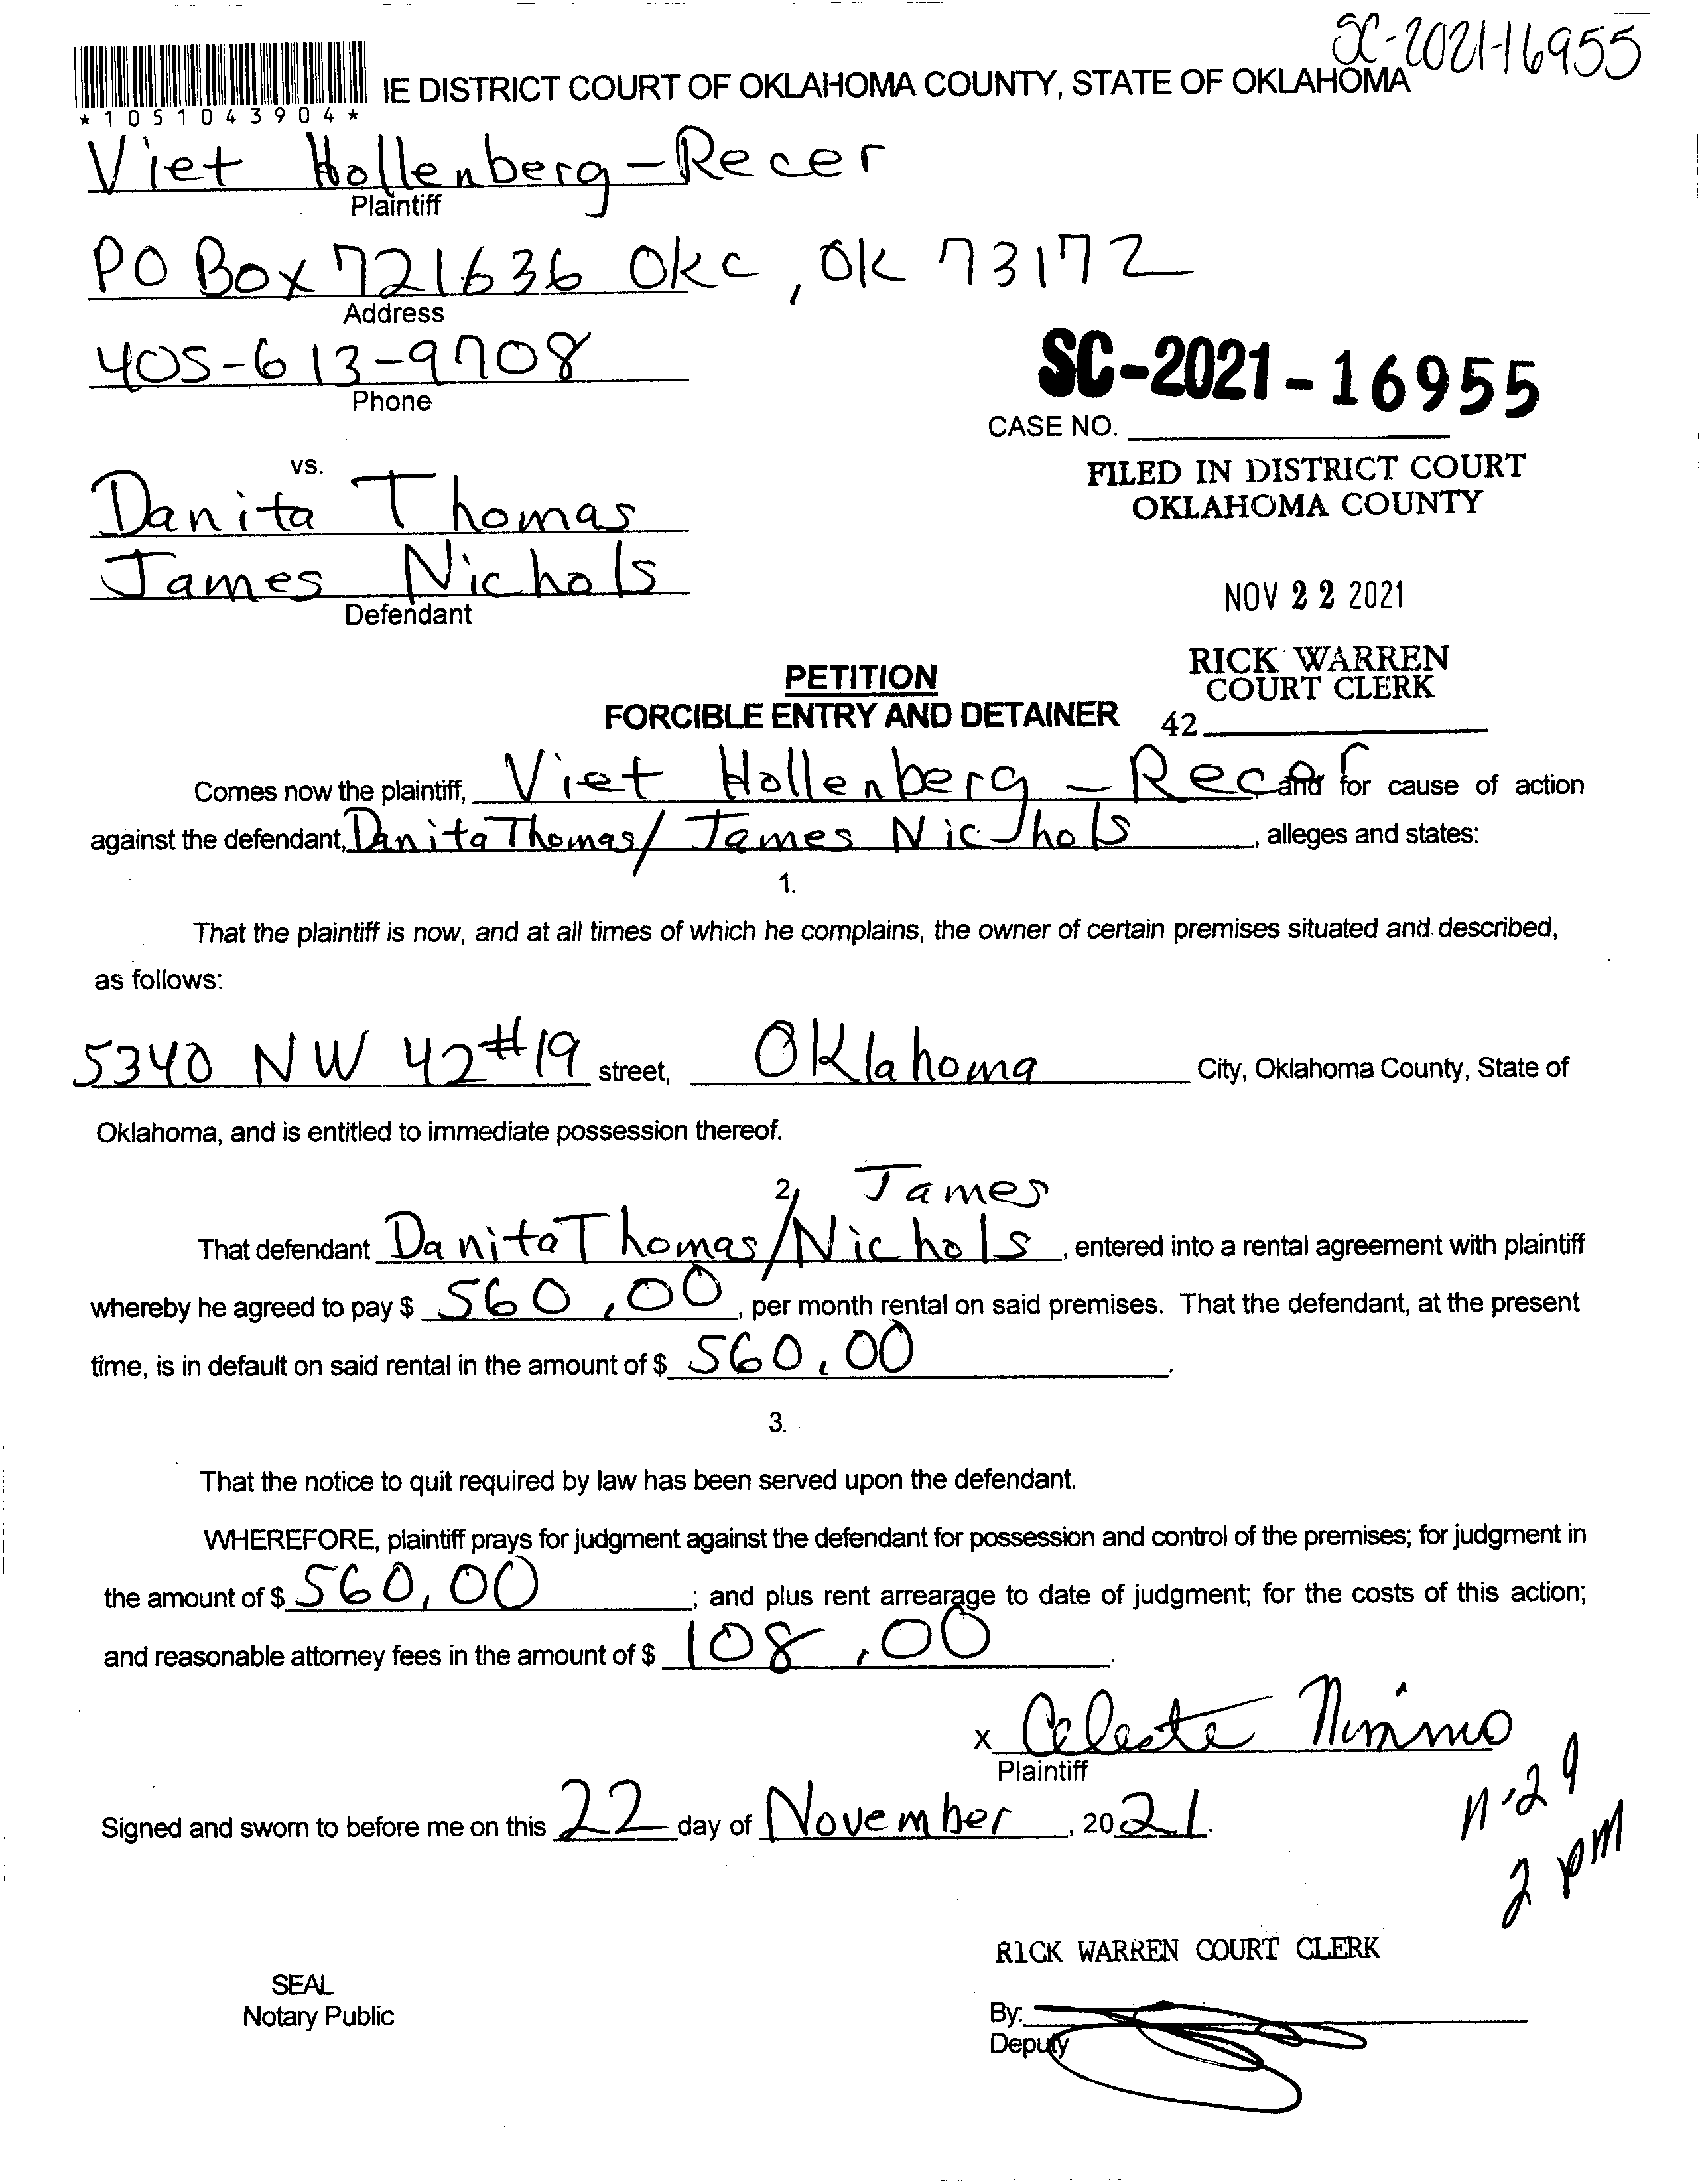 SC-2021-16955
IE DISTRICT COURT OF OKLAHOMA COUNTY, STATE OF OKLAHOMA
*1051043904*
Viet Hollenberg-Recer
Plaintiff
PO Box 721636 OKC, OK 73172
Address
405-613-9708
Phone
SC-2021-16955
CASE NO.
vs.
FILED IN DISTRICT COURT
OKLAHOMA COUNTY
Danita Thomas
James Nichols
Defendant
NOV 22 2021
RICK WARREN
COURT CLERK
42
PETITION
FORCIBLE ENTRY AND DETAINER
Comes now the plaintiff, Viet Hollenberg-Recer and for cause of action
against the defendant, Danita Thomas/ James Nichols, alleges and states:
1.
That the plaintiff is now, and at all times of which he complains, the owner of certain premises situated and described,
as follows:
5340 NW 42 #19 street, Oklahoma City, Oklahoma County, State of
Oklahoma, and is entitled to immediate possession thereof.
2. James
That defendant Danita Thomas/Nichols, entered into a rental agreement with plaintiff
whereby he agreed to pay $ 560.00, per month rental on said premises. That the defendant, at the present
time, is in default on said rental in the amount of $ 560.00.
3.
That the notice to quit required by law has been served upon the defendant.
WHEREFORE, plaintiff prays for judgment against the defendant for possession and control of the premises; for judgment in
the amount of $ 560.00; and plus rent arrearage to date of judgment; for the costs of this action;
and reasonable attorney fees in the amount of $ 108.00.
x Celeste Nimmo
Plaintiff
Signed and sworn to before me on this 22 day of November, 2021.
11-29
2 pm
RICK WARREN COURT CLERK
SEAL
Notary Public
By:
Deputy